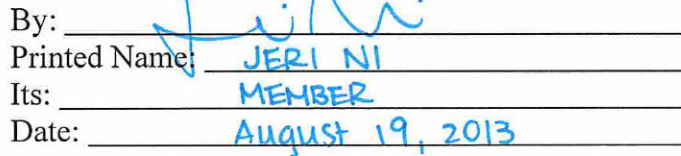 By:
Printed Name: JERI NI
Its: MEMBER
Date: August 19, 2013